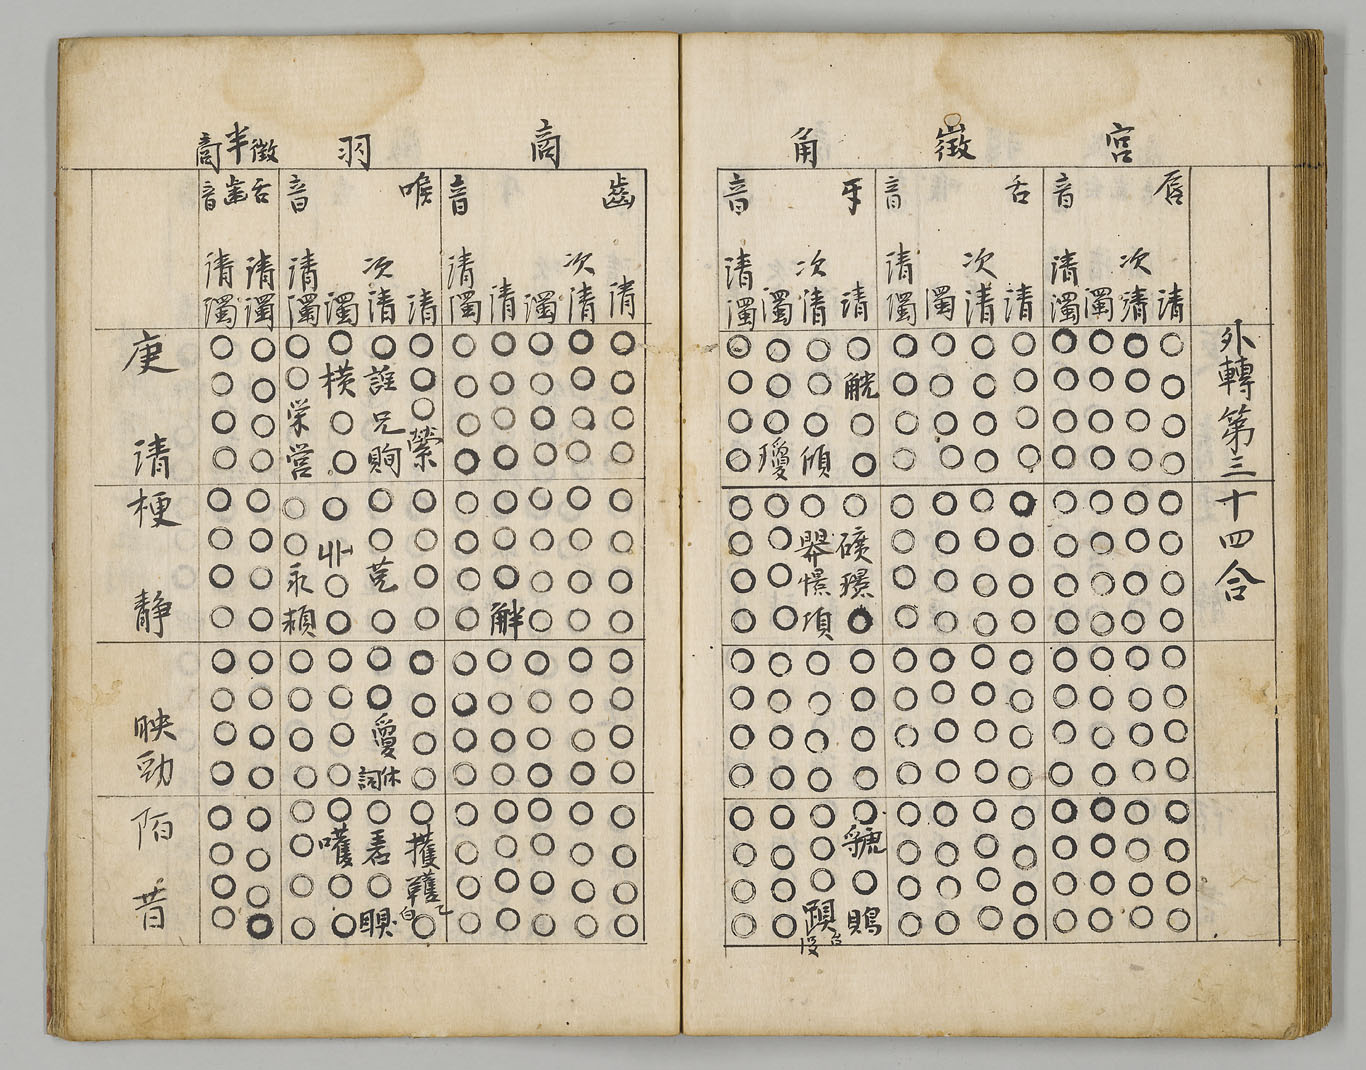 外轉第三十四合
宮 徵 角
脣音
清
次清
濁
清濁
舌音
清
次清
濁
清濁
牙音
清 觥 礦 璟 虢
次清 傾 憬 頃
濁 瓊
清濁
商 羽 半徵商
齒音
清
次清
濁
清
清濁
喉音
清 縈 擭
次清 諻 兄 夐 休詗
濁 橫 卝 嚄
音清濁 榮 營 永 穎
舌齒音
清濁
清濁
庚 清 梗 靜 映 勁 陌 昔